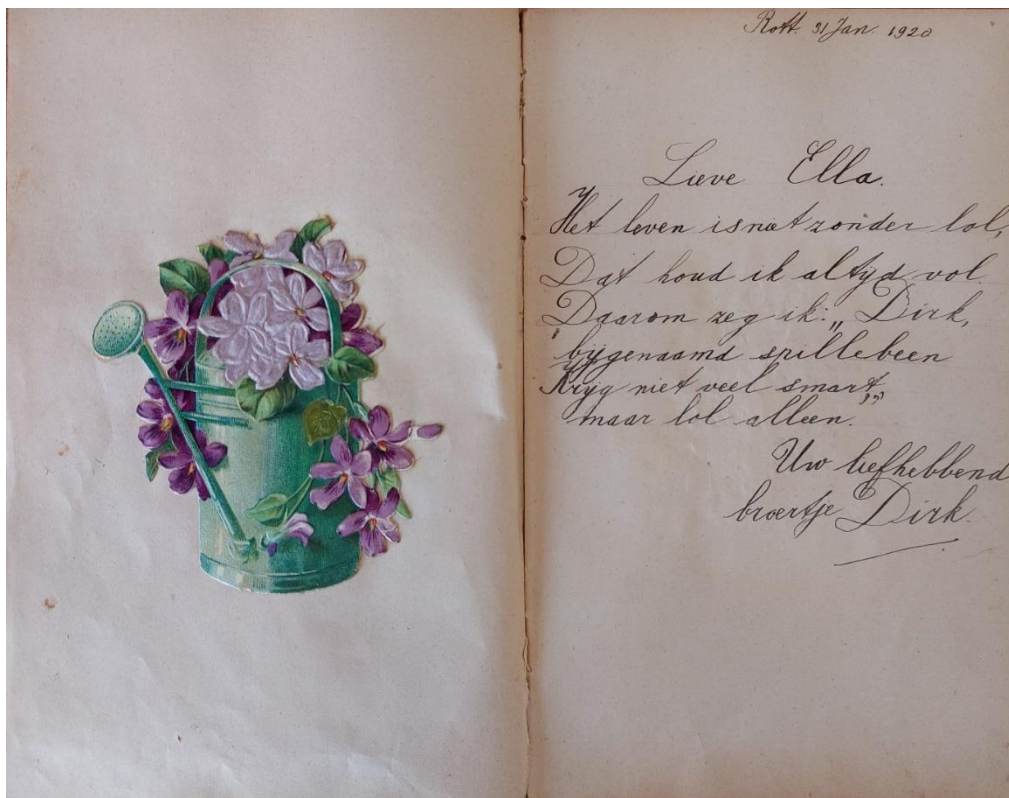 Rott. 31 Jan. 1920
Lieve Ella.
Het leven is niet zonder lol,
Dat houd ik altyd vol.
Daarom zeg ik: „Dirk,
bijgenaamd spillebeen
Kryg niet veel smart,"
maar lol alleen.
Uw liefhebbend
broertje Dirk.